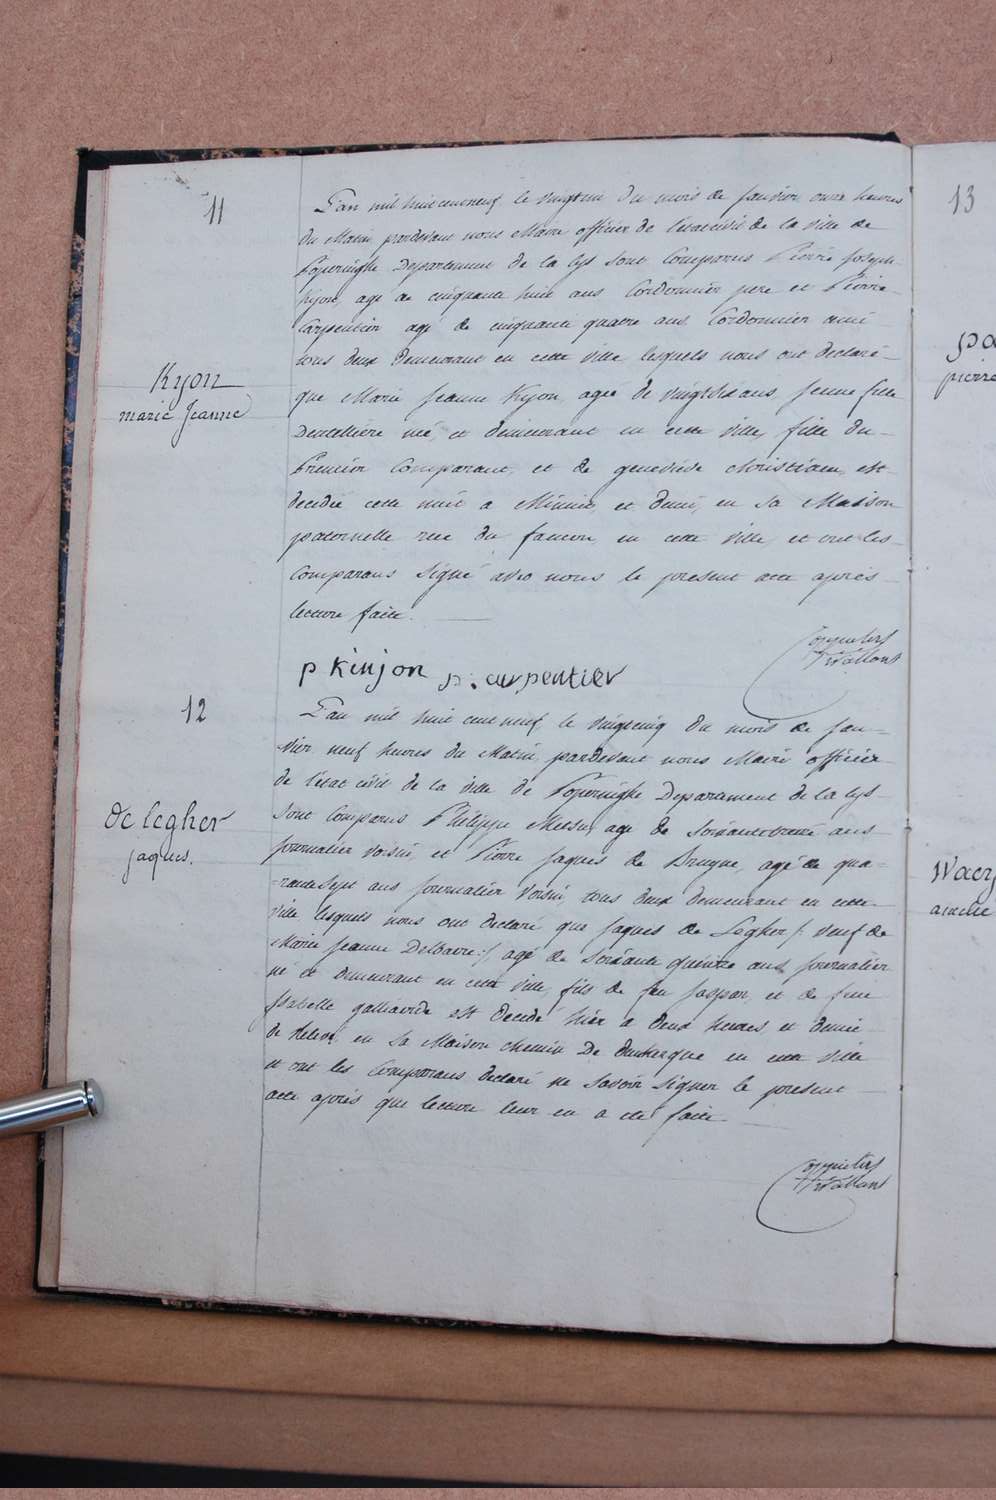 11
Kyon
marie Jeanne
L'an mil huit cent neuf le vingt un du mois de janvier onze heures
du Matin pardevant nous Maire officier de l'état civil de la ville de
Poperinghe Departement de la Lys sont Comparus Pierre joseph
Kyon, agé de cinquante huit ans Cordonnier pere et Pierre
Carpentier agé de cinquante quatre ans Cordonnier ami
tous deux demeurant en cette ville lesquels nous ont declaré
que Marie Jeanne Kyon, agée de vingt six ans jeune fille
Dentelliere né, et demeurant en cette ville, fille du
Premier Comparant, et de genevieve Christiaen, est
decedée cette nuit a Minuit et demi, en sa Maison
paternelle rue du faucon, en cette ville, et ont les
Comparans Signé avec nous le present acte après
lecture faite.
p kinjon p. carpentier
12
de legher
jaques.
L'an mil huit cent neuf, le vingt cinq du mois de jan=
vier neuf heures du Matin, pardevant nous Maire officier
de l'état civil de la ville de Poperinghe Departement de la Lys
sont Comparus Philippe Metsu, agé de soixante treize ans
journalier voisin, et Pierre Jaques de Bruyne, agé de qua=
=rante Sept ans journalier voisin, tous deux demeurant en cette
ville lesquels nous ont declaré que Jaques de Legher /: veuf de
Marie Jeanne Delbaere :/ agé de soixante quinze ans, journalier
né et demeurant en cette ville, fils de feu Jaspar, et de feue
Isabelle est decedé hier a deux heures et demie
de relevé, en sa Maison chemin De dunkerque en cette ville
et ont les Comparans declaré ne savoir signer le present
acte après que lecture leur en a été faite.
13
pierre
Waey